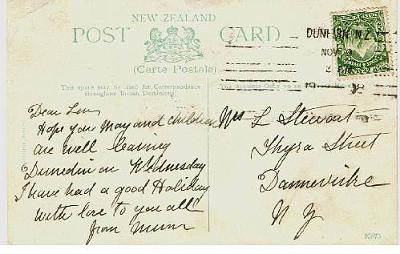 NEW ZEALAND
POST CARD
(Carte Postale)
This space may be used for Correspondence
throughout British Dominions.
DUNEDIN N.Z
NOV
Dear Lou,
Hope you May and children
are well leaving
Dunedin on Wednesday
I have had a good Holiday
With love to you all
from Mum
Mrs L Stewart
Thyra Street
Dannevirke
N Z